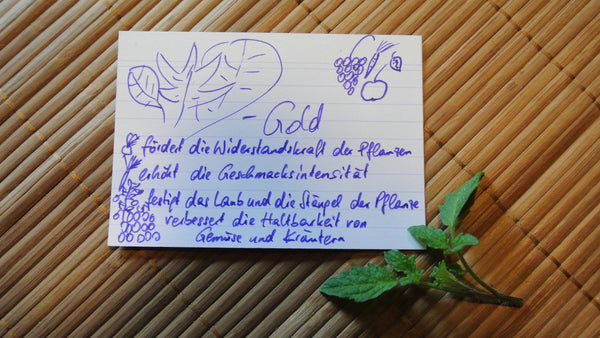 - Gold
fördert die Widerstandskraft der Pflanzen
erhöht die Geschmacksintensität
festigt das Laub und die Stängel der Pflanze
verbessert die Haltbarkeit von
Gemüse und Kräutern